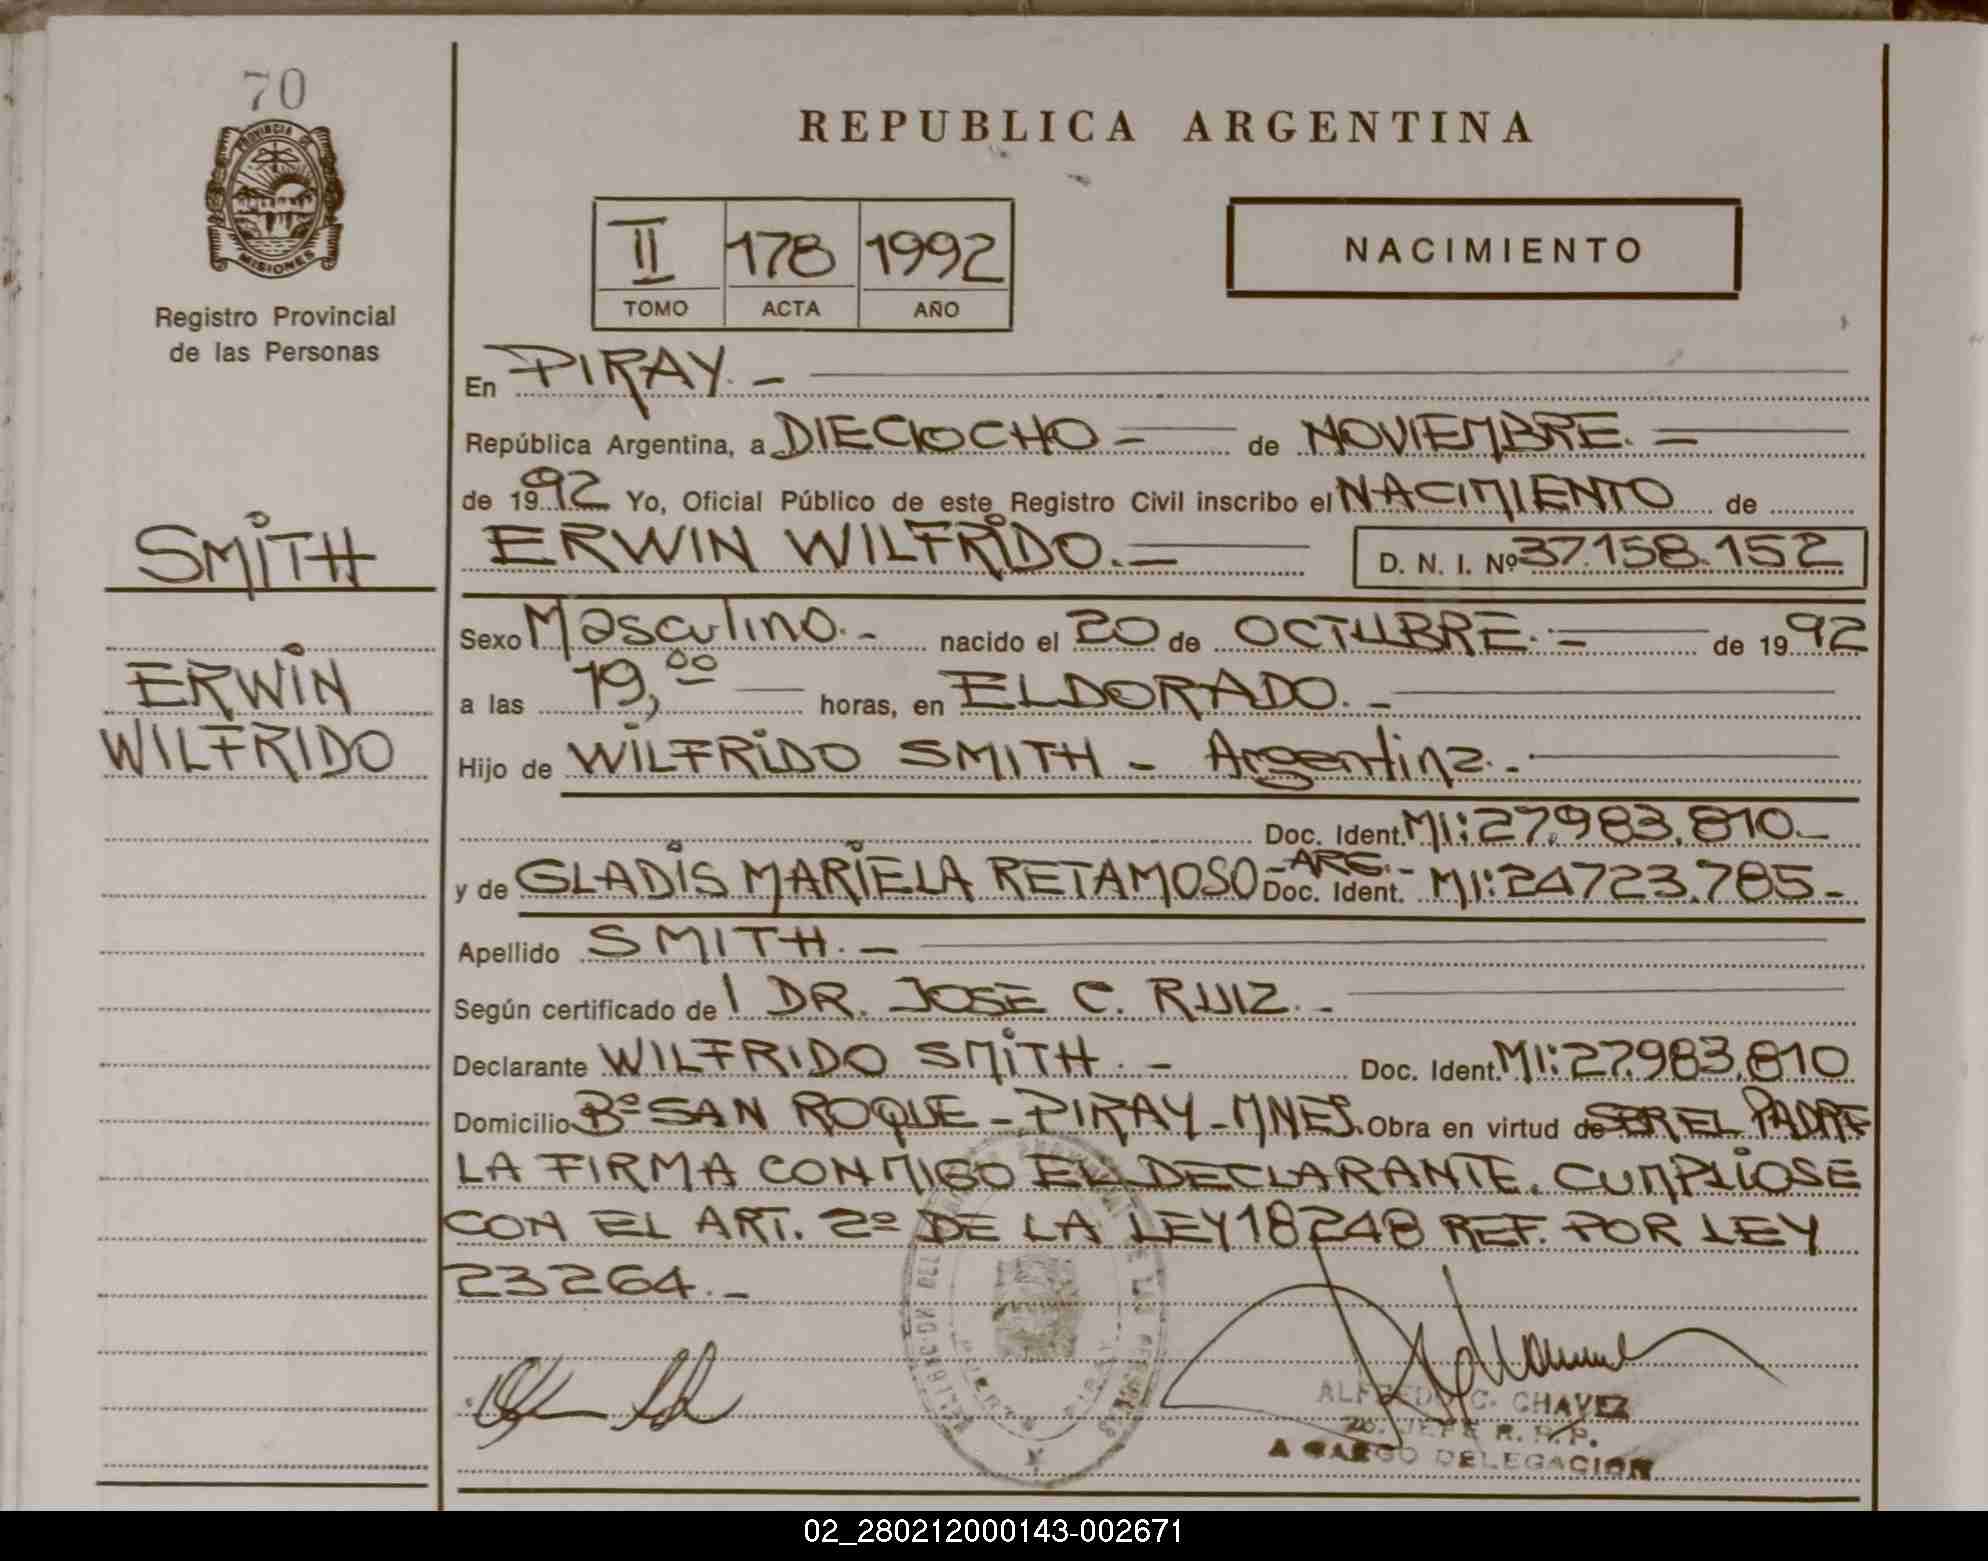 70
PROVINCIA DE
MISIONES
Registro Provincial
de las Personas
SMITH
ERWIN
WILFRIDO
REPUBLICA ARGENTINA
II 178 1992
TOMO ACTA AÑO
NACIMIENTO
En PIRAY. -
República Argentina, a DIECIOCHO - de NOVIEMBRE. -
de 1992 Yo, Oficial Público de este Registro Civil inscribo el NACIMIENTO de
ERWIN WILFRIDO. - D. N. I. Nº 37.158.152
Sexo Masculino. - nacido el 20 de OCTUBRE. - de 1992
a las 19,00 horas, en ELDORADO. -
Hijo de WILFRIDO SMITH - Argentina. -
Doc. Ident. MI: 27.983.810. -
y de GLADIS MARIELA RETAMOSO - ARG. - Doc. Ident. MI: 24723.785 -
Apellido SMITH. -
Según certificado de 1 DR. JOSE C. RUIZ. -
Declarante WILFRIDO SMITH. - Doc. Ident. MI: 27.983.810
Domicilio Bº SAN ROQUE - PIRAY - MNES. Obra en virtud de SER EL PADRE
LA FIRMA CONMIGO EL DECLARANTE. CUMPLIOSE
CON EL ART. 2º DE LA LEY 18248 REF. POR LEY
23264. -
ALFREDO C. CHAVEZ
2o. JEFE R. R. P.
A CARGO DELEGACION
02_280212000143-002671